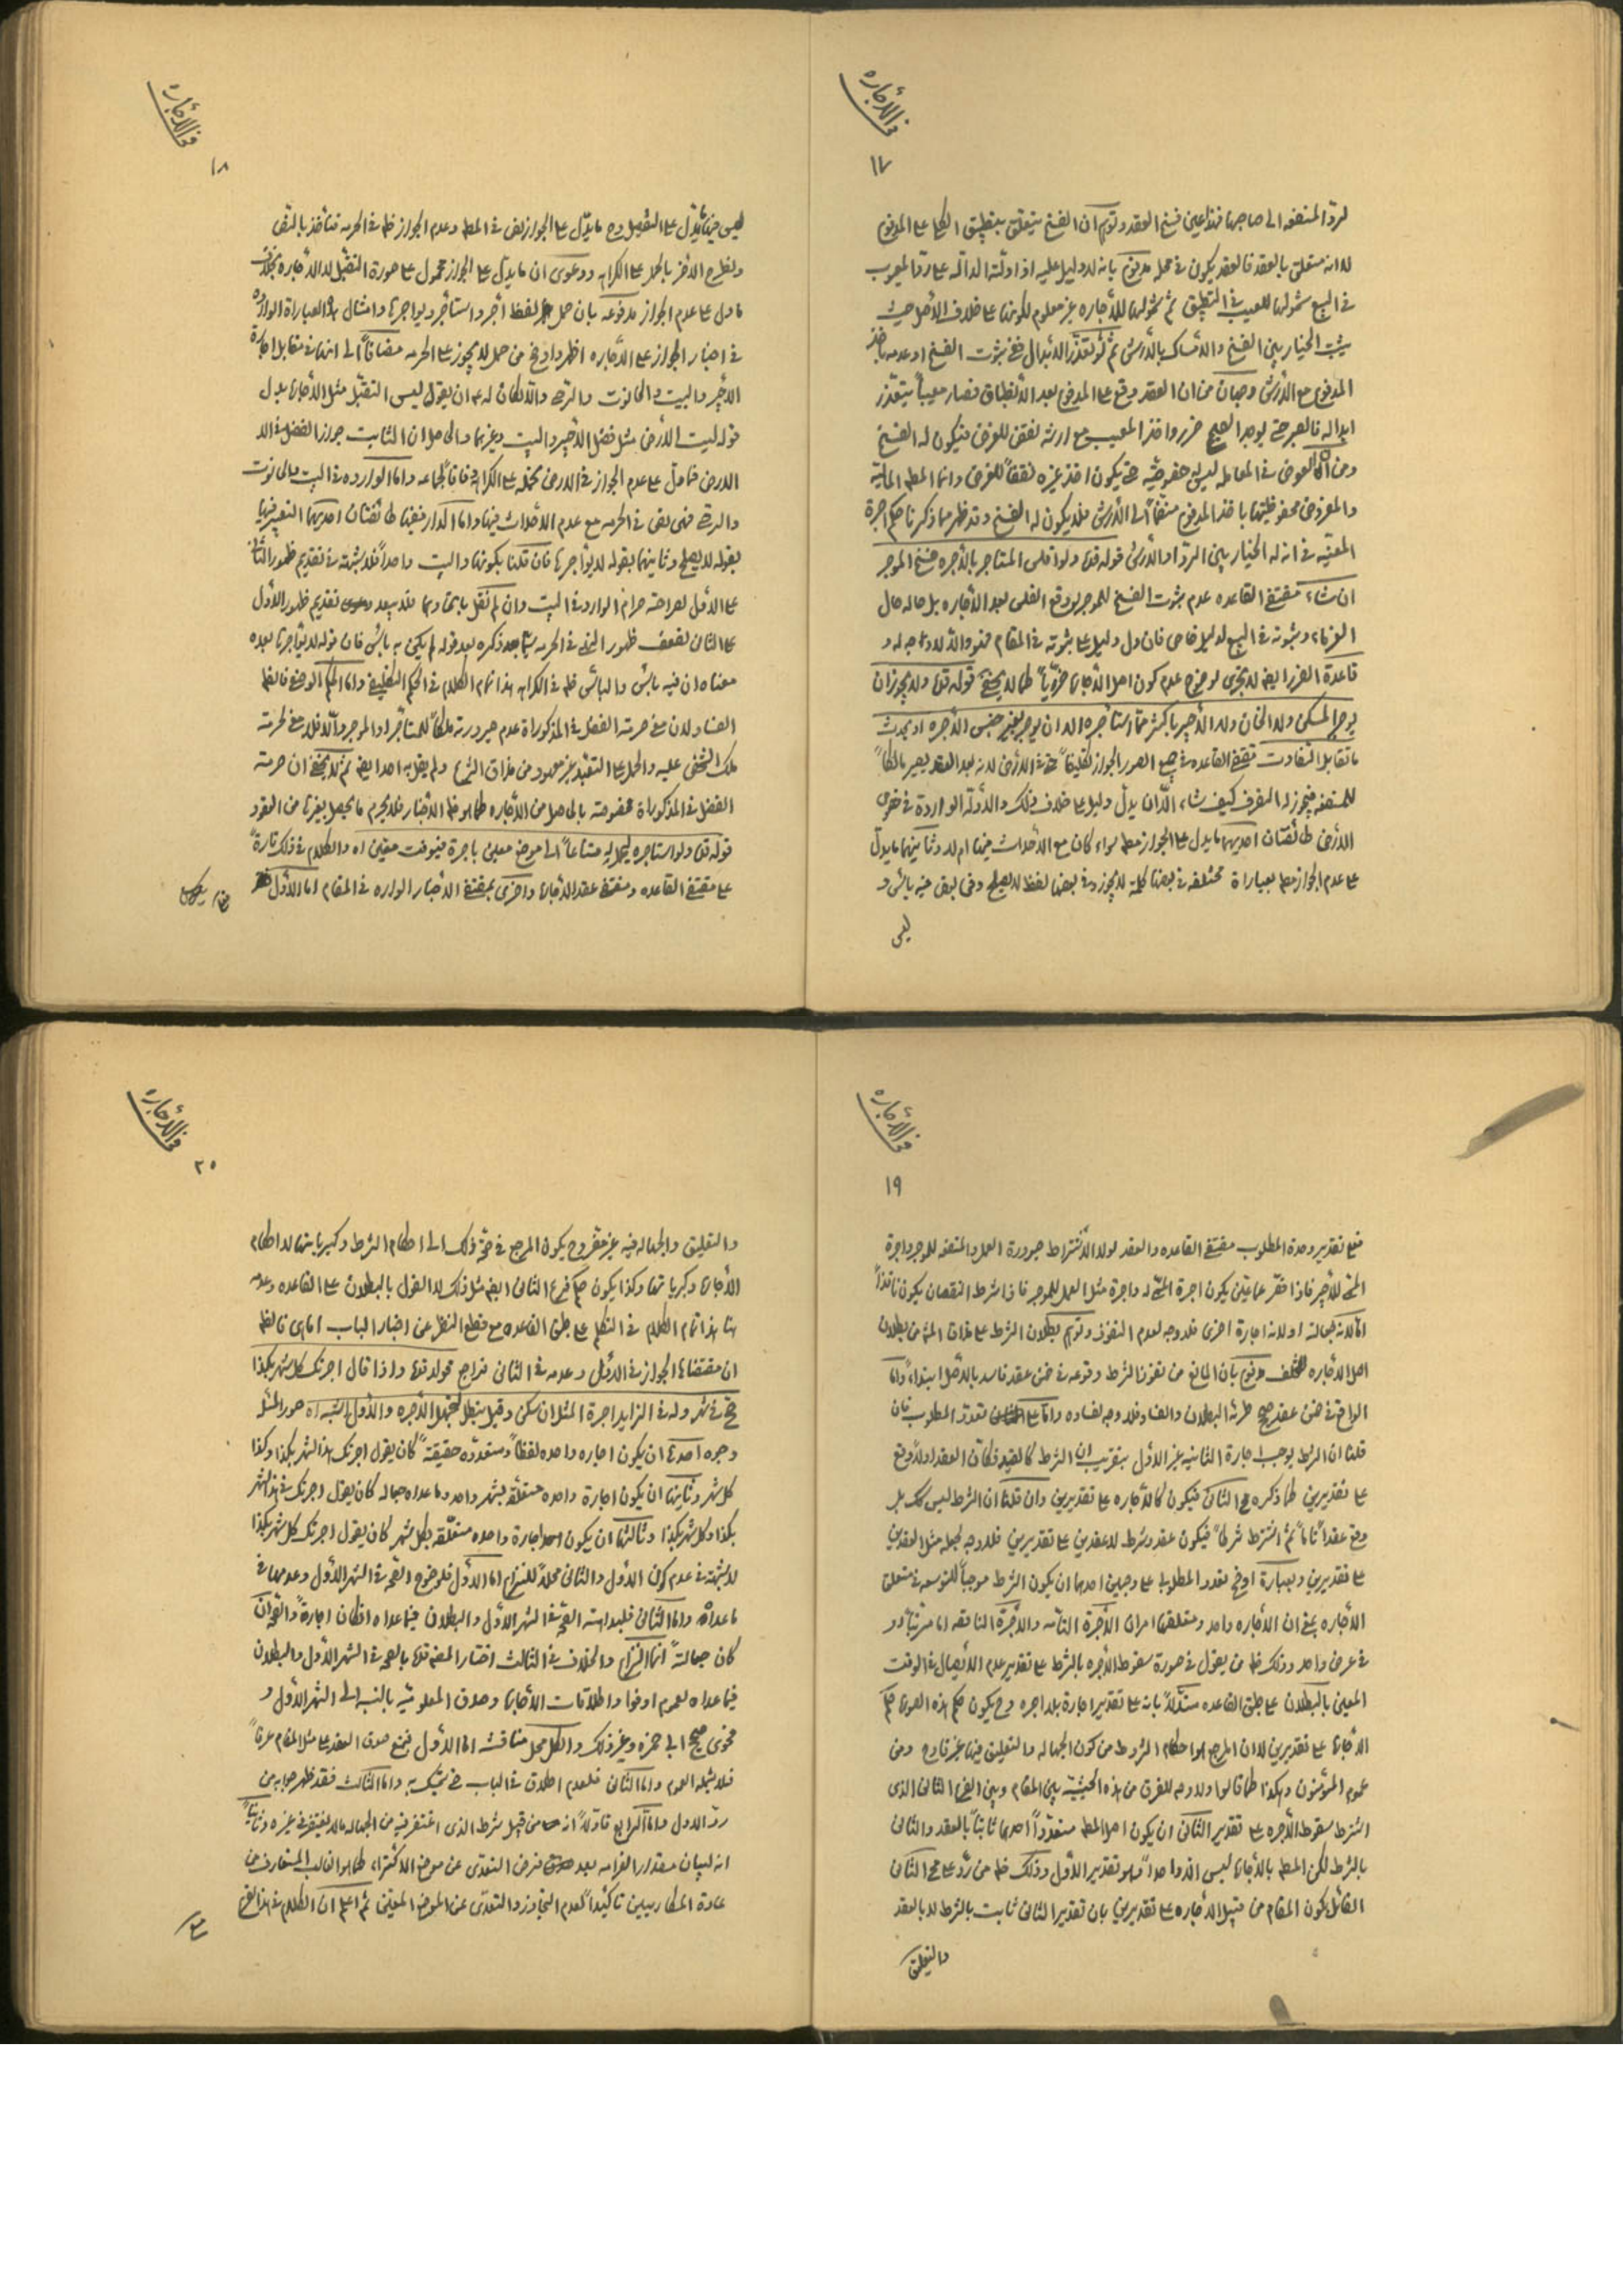 فی الأجاره
١٧
لردّ المنفعه الی صاحبها فتعین فسخ العقد وتوهم ان الفسخ یتعلق بتطبیق الکلی علی المدفوع
لا انه متعلق بالعقد فالعقد یکون فی محله مدفوع بانه لا دلیل علیه اذ ادلته الداله علی ردّ المعیوب
فی البیع شمولها للعیب فی التطبیق ثم شمولها للأجاره غیر معلوم لکونها علی خلاف الأصل حیث
یثبت الخیار بین الفسخ والامساک بالأرش ثم لو تعذّر الابدال ففی ثبوت الفسخ او عدمه باخذ
المدفوع مع الأرش وجهان من ان العقد وقع علی المدفوع بعد الانطباق فصار معیباً یتعذّر
ابداله فالصبر حتی یوجد الصحیح ضرر واخذ المعیب مع ارشه نقض للغرض فیکون له الفسخ
ومن ان العوض فی المعامله لیس خصوصیّه حتی یکون اخذ غیره نقضاً للغرض وانما المطلوب المالیّة
والمفروض محفوظیتها باخذ المدفوع منضماً الی الأرش فلا یکون له الفسخ وقد ظهر مما ذکرنا حکم اجرة
المعیّنه فی ان له الخیار بین الردّ او الأرش قوله قده ولو افلس المستأجر بالأجره فسخ الموجر
ان شاء مقتضی القاعده عدم ثبوت الفسخ للموجر لوقوع الفلس بعد الأجاره بل حاله حال
الغرماء وثبوته فی البیع لدلیل خاص فان دل دلیل علی ثبوته فی المقام فهو والّا فلا وجه له و
قاعدة الضرر ایضا لا تجری لوضوح عدم کون اصل الأجاره ضرریّاً کما لا یخفی قوله قده ولا یجوز ان
یوجر المسکن ولا الخان ولا الأجیر باکثر ممّا استأجره الا ان یوجر بغیر جنس الأجره او یحدث
ما تقابل التفاوت مقتضی القاعده فی جمیع الصور الجواز تکلیفاً حتی فی الأرض لانه بعد العقد یصیر مالکاً
للمنفعه فیجوز له التصرف کیف شاء الّا ان یدلّ دلیل علی خلاف ذلک والأدلّه الواردة فی خصوص
الأرض طائفتان احدیهما ما یدل علی الجواز مطلقا سواء کان مع الأحداث فیها ام لا وثانیتهما ما یدلّ
علی عدم الجواز مطلقا بعبارات مختلفه فی بعضها کلمة لا یجوز وفی بعضها لفظ لا یصلح وفی بعض فیه بأس و
لیس
فی الأجاره
١٨
لیس فیها ما یدل علی التفصیل وح ما یدّل علی الجواز نص فی المطلب وعدم الجواز ظاهر فی الحرمه فنأخذ بالنص
ونطرح الاخر بالحمل علی الکراهه ودعوی ان ما یدل علی الجواز محمول علی صورة التقبّل لا الأجاره بخلاف
ما دل علی عدم الجواز مدفوعه بان حمل لفظ اٰجر واستأجر ویواجرها وامثال هذه العبارات الوارده
فی اخبار الجواز علی الأجاره اظهر واوضح من حمل لا یجوز علی الحرمه مضافاً الی انها فی مقابل اجارة
الأجیر والبیت والحانوت والرحی والّا لکان له ان یقول لیس التقبّل مثل الأجاره بدل
قوله لیست الأرض مثل فضل الأجیر والبیت وغیرهما والحاصل ان الثابت جواز الفضل فی
الارض فما دل علی عدم الجواز فی الارض نحمله علی الکراهة وفاقاً لجماعه واما الوارده فی البیت والحانوت
والرحی فهی نص فی الحرمه مع عدم الاحداث فیها واما الدار ففیها طائفتان احدیهما التعبیر فیها
بقوله لا یصلح وثانیتهما بقوله لا یؤاجرها فان قلنا بکونها والبیت واحداً فلا شبهة فی تقدیم ظهور الثانی
علی الأول لصراحة حرام الوارد فی البیت وان لم نقل باتحادهما فلا یبعد تقدیم ظهور الأوّل
علی الثانی لضعف ظهور النهی فی الحرمه سیما بعد ذکره بعد قوله لم یکن به بأس فان قوله لا یؤاجرها بعده
معناه ان فیه بأس والبأس ظاهر فی الکراهه هذا تمام الکلام فی الحکم التکلیفی واما الحکم الوضعی فالظاهر
الفساد لان معنی حرمة الفضل فی المذکورات عدم صیرورته ملکاً للمستأجر او الموجر والّا فلا معنی لحرمة
ملک الشخص علیه والحمل علی التعبّد غیر معهود من مذاق الشرع ولم یقل به احد ایضا ثم لا یخفی ان حرمة
الفضل فی المذکورات مخصوصة بالحاصل من الأجاره کما هو ظاهر الأخبار فلا یحرم ما یحصل بغیرها من العقود
قوله قده ولو استأجره لیحمل له متاعاً الی موضع معین باجرة فیوقت معین اه والکلام فی ذلک تارةً
علی مقتضی القاعده ومقتضی عقد الأجاره واخری بمقتضی الأخبار الوارده فی المقام اما الأوّل
فی الأجاره
١٩
فمع تقدیر وحدة المطلوب مقتضی القاعده والعقد لولا الأشتراط صیرورة العمل والمنفعه للموجر واجرة
المسمی للأجیر فاذا خصّ عمّا عیّن یکون اجرة المسمی له واجرة مثل العمل للموجر فاذا شرط النقصان یکون نافذاً
امّا لانه جعالة او لانه اجارة اخری فلا وجه لعدم النفوذ وتوهم بطلان الشرط علی خلاف المشهور من بطلان
اصل الأجاره مدفوع بان المانع من نفوذ الشرط وقوعه فی ضمن عقد فاسد بالأصل ابتداءً وامّا
الواقع فی ضمن عقد صحیح طرئه البطلان والفساد فلا وجه لفساده وامّا علی تعدد المطلوب فان
قلنا ان الشرط یوجب اجارة الثانیه غیر الأوّل بتقریب ان الشرط کالقید فکأنّ العقد اولاً وقع
علی تقدیرین کما ذکره المحقق الثانی فیکون کالأجاره علی تقدیرین وان قلنا ان الشرط لیس کک بل
وقع عقداً تاماً ثم اشترط شرطاً فیکون عقد وشرط لا عقدین علی تقدیرین فلا وجه لجعله مثل العقدین
علی تقدیرین وبعبارة اوضح تعدد المطلوب علی وجهین احدهما ان یکون الشرط موجباً للتوسعه فی متعلق
الأجاره یعنی ان الأجاره واحد ومتعلقها امران الأجرة التامّه والأجرة الناقصه اما مرتباً او
فی عرض واحد وذلک ظاهر من یقول فی صورة سقوط الأجره بالشرط علی تقدیر عدم الأیصال فی الوقت
المعین بالبطلان علی طبق القاعده مستدلاً بانه علی تقدیر اجارة بلا اجره وح یکون حکم هذه الصوره حکم
الأجاره علی تقدیرین لا ان المرجع هو احکام الشروط من کون الجهاله والتعلیق فیها غیر قادح ومن
عموم المؤمنون وهکذا کما قالوا ولا وجه للفرق من هذه الحیثیّه بین المقام وبین الفرع الثانی الذی
اشترط سقوط الأجره علی تقدیر الثانی ان یکون اصل المطلب متعدداً احدها ثابتاً بالعقد والثانی
بالشرط لکن المطلب بالأجاره لیس الا واحداً وهو تقدیر الأوّل وذلک ظاهر من ردّ علی المحقق الثانی
القائل بکون المقام من قبیل الأجاره علی تقدیرین بان تقدیر الثانی ثابت بالشرط لا بالعقد
والتعلیق
فی الأجاره
٢٠
والتعلیق والجهاله فیه غیر مضر وح یکون المرجع فی صحّة ذلک الی احکام الشرط وکبریاتها لا احکام
الأجاره وکبریاتها وکذا یکون حکم فرع الثانی ایضا مثل ذلک لا القول بالبطلان علی القاعده وعدمه
هنا هذا تمام الکلام فی التکلم علی طبق القاعده مع قطع النظر عن اخبار الباب اما هی فالظاهر
ان مقتضاها الجواز فی الأوّل وعدمه فی الثانی فراجع قوله قده واذا قال اجرتک کل شهر بکذا
صحّ فی شهر وله فی الزاید اجرة المثل ان سکن وقیل یبطل لتجهل الأجره والأول اشبه اه صور المثل
وجوه احدها ان یکون اجاره واحده لفظاً ومتعدّده حقیقةً کان یقول اجرتک هذا الشهر بکذا وکذا
کل شهر وثانیها ان یکون اجارة واحده متعلقه بشهر واحد وما عداه جعاله کان یقول اجرتک فی هذا الشهر
بکذا وکل شهر بکذا وثالثها ان یکون اجارة واحده متعلّقه بکل شهر کان یقول اجرتک کل شهر بکذا
لا شبهة فی عدم کون الأوّل والثانی محلاً للنزاع اما الأوّل فلوضوح الصحّه فی الشهر الأوّل وعدمها فی
ما عداه واما الثانی فلبداهة الصحّه فی الشهر الأوّل والبطلان فیما عداه اذا کان اجارةً والصّحه ان
کان جعالةً انما النزاع والخلاف فی الثالث اختار المصنف قده بالصحه فی الشهر الأوّل والبطلان
فیما عداه لعموم اوفوا واطلاقات الأجاره وصدق المعلومیّه بالنسبه الی الشهر الأوّل و
فحوی صحیح ابی حمزه وغیر ذلک والکل محل مناقشه اما الأوّل فیمنع صدق العقد علی مثل المقام عرفاً
فلا یشمله العموم واما الثانی فلعدم اطلاق فی الباب حتی یتمسک به واما الثالث فقد ظهر جوابه من
ردّ الاول واما الرابع فاولاً انه من قبیل شرط الذی اغتفر فیه من الجهاله ما لا یغتفر فی غیره وثانیاً
انه لبیان مقدار الغرامه بعد فرض التعدّی عن موضع الاکتراء کما هو الغالب المتعارف من
عادة المکارین تأکیداً لعدم التجاوز والتعدّی عن الموضع المعیّن ثم اعلم ان الکلام فی هذا الفرع